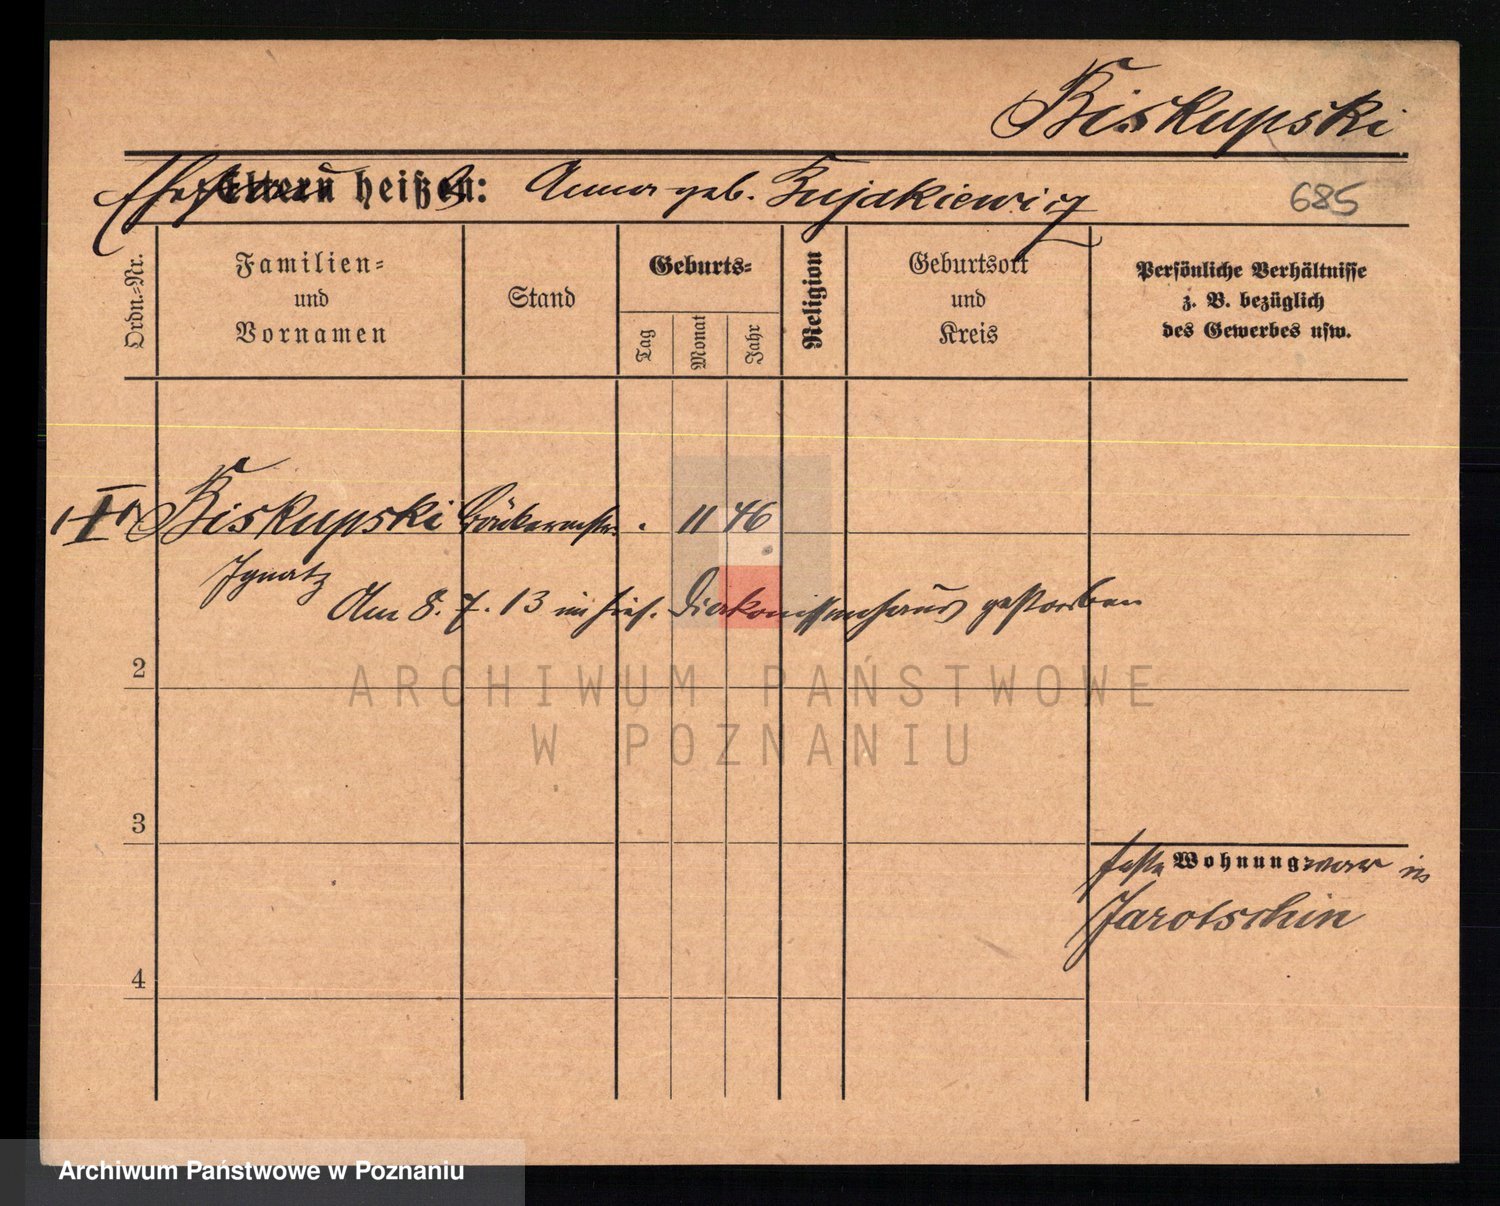 Biskupski
Ehefrau Eltern heißen: Anna geb. Bujakiewicz
685
Ordn.-Nr.
Familien-
und
Vornamen
Stand
Geburts-
Tag
Monat
Jahr
Religion
Geburtsort
und
Kreis
Persönliche Verhältnisse
z. B. bezüglich
des Gewerbes usw.
1 Biskupski Bäckermstr. . 11 46
Ignatz
Am 8. 7. 13 im hies. Diakonissenhaus gestorben
2
ARCHIWUM PAŃSTWOWE
W POZNANIU
3
feste Wohnung war in
Jarotschin
4
Archiwum Państwowe w Poznaniu